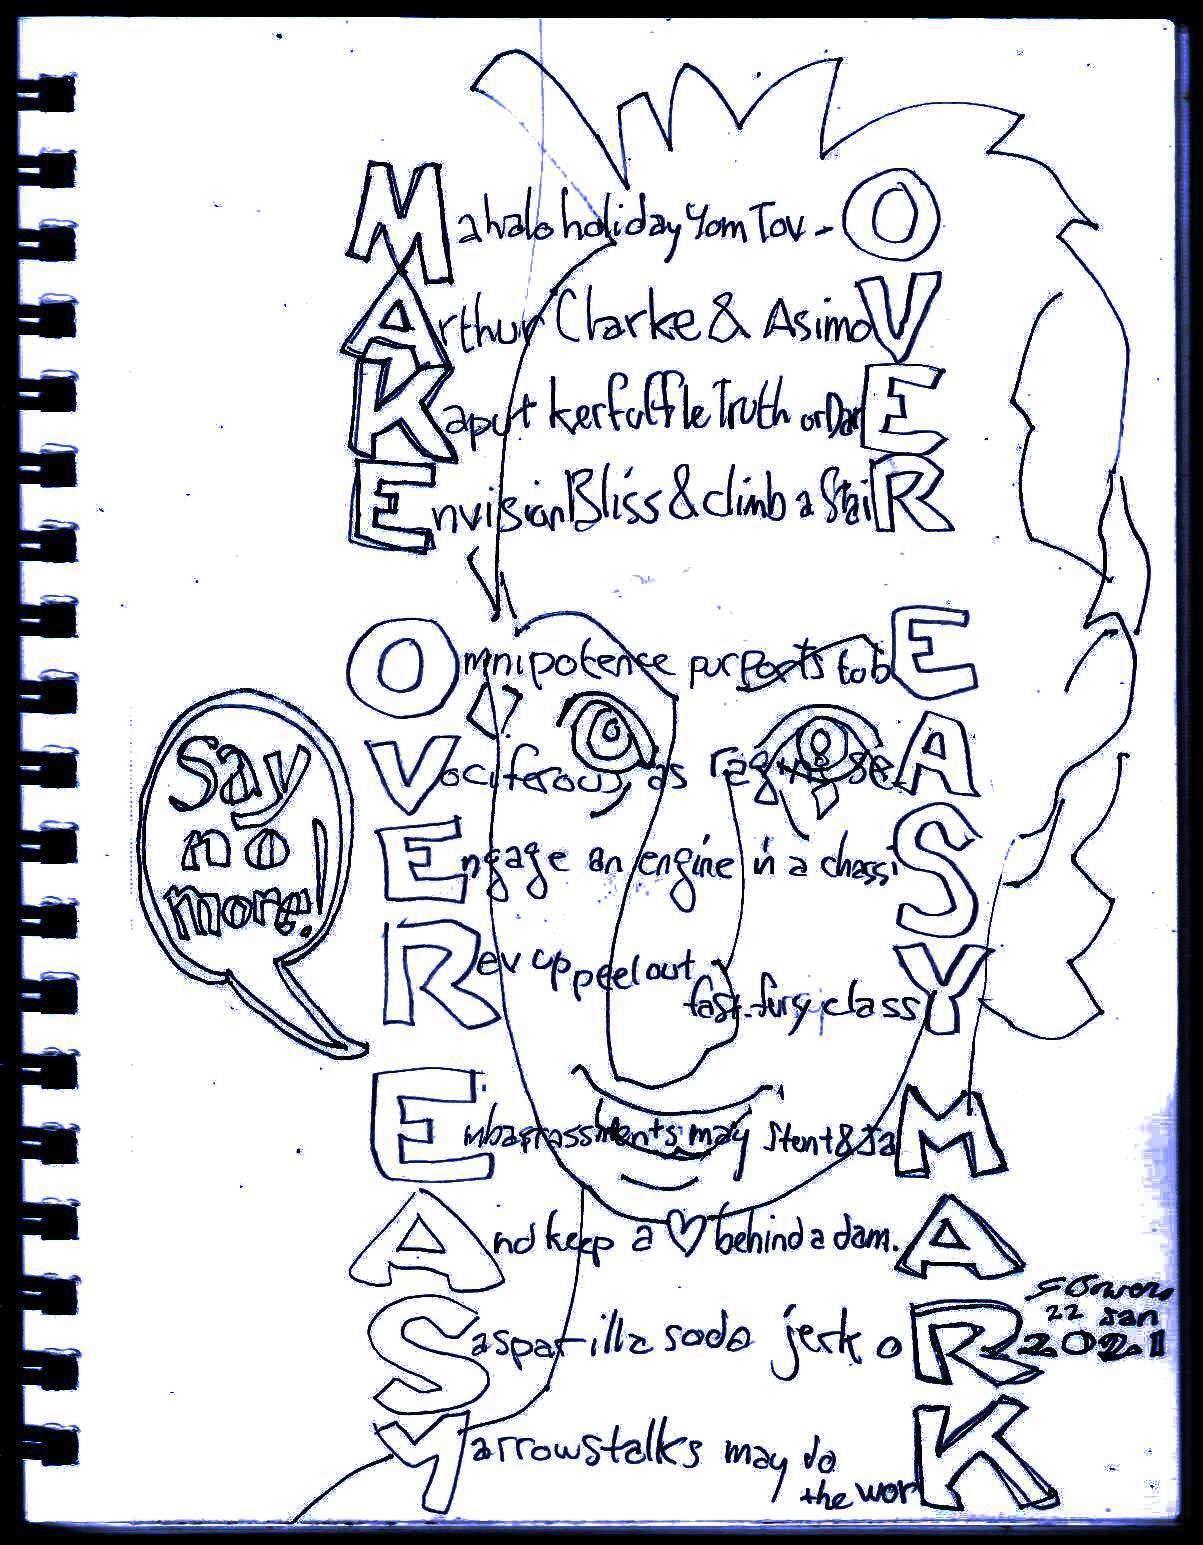 Mahalo holiday Yom Tov - O
Arthur Clarke & AsimoV
Kaput kerfuffle Truth or DarE
Envision Bliss & climb a StaiR
Omnipotence purports to bE
Vociferous as raging seA
Engage an engine in a chassiS
Rev up peel out fast-fury classY
Embarrassments may Stent & JaM
And keep a ♡ behind a dam. A
Saspatilla soda jerk oR
Yarrowstalks may do the worK
Say
no
more!
22 Jan
2021